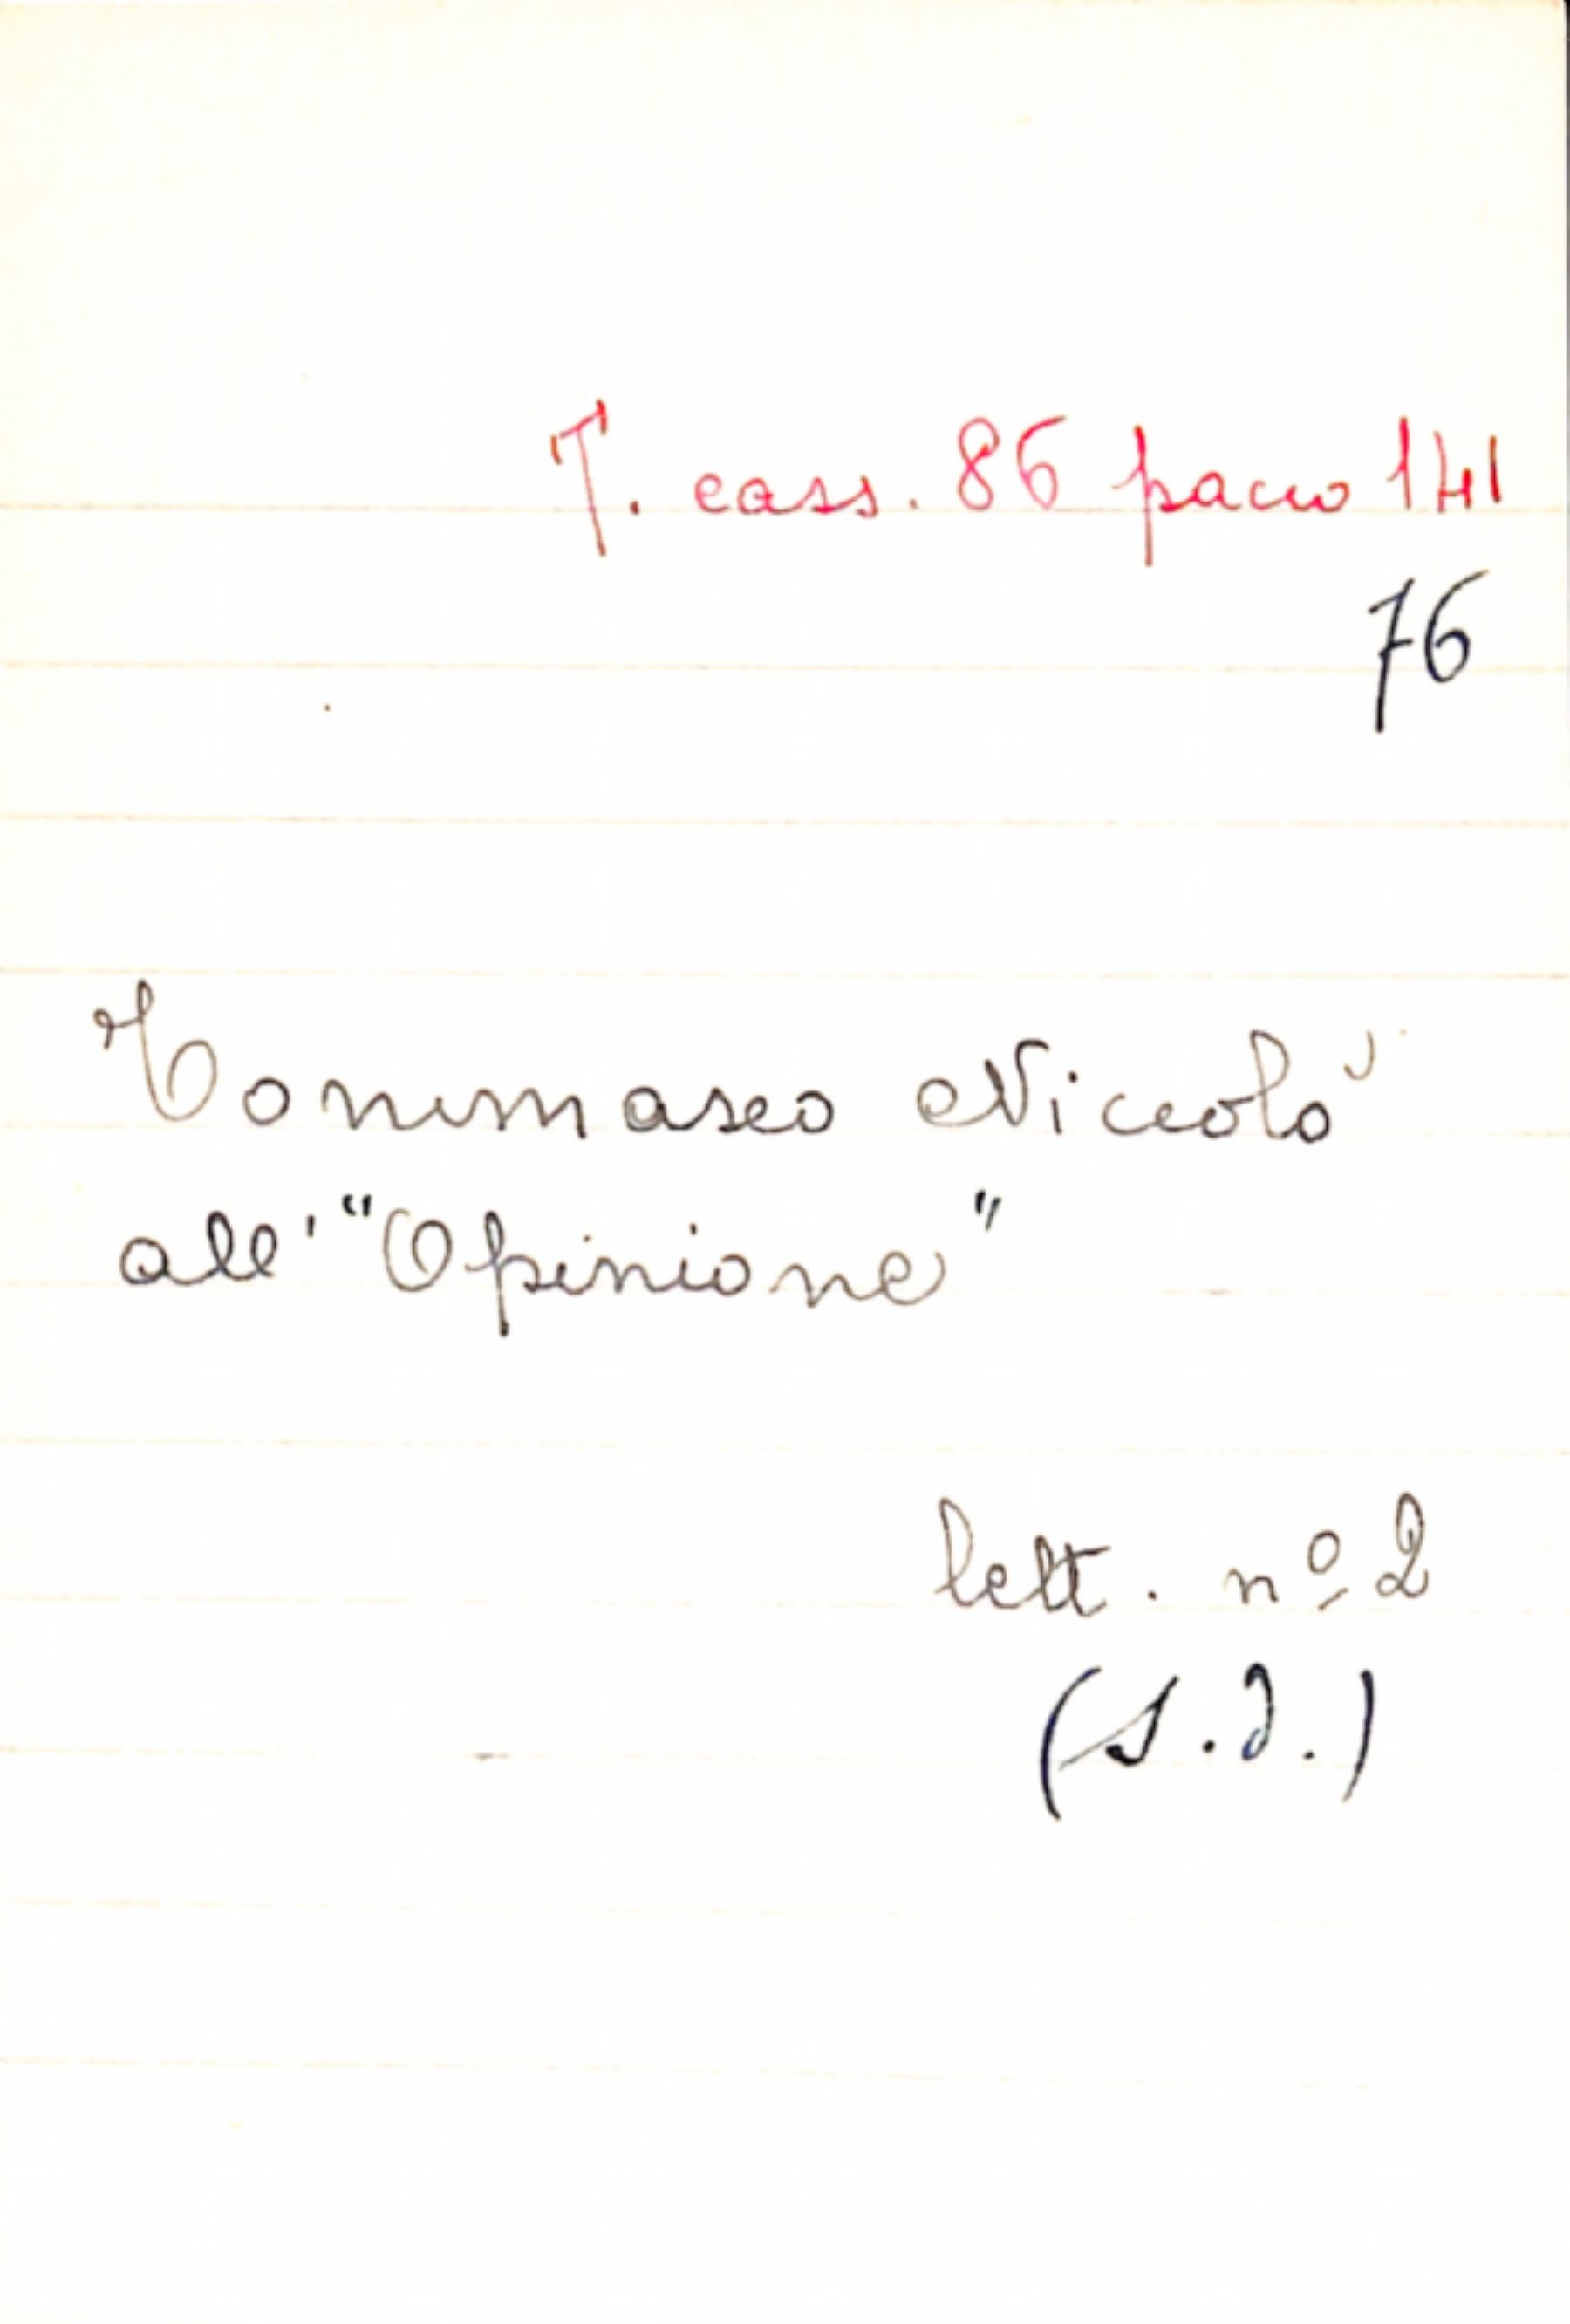 T. cass. 86 pacco 141
76
Tommaseo Niccolò
all' "Opinione"
lett. nº 2
(s.d.)